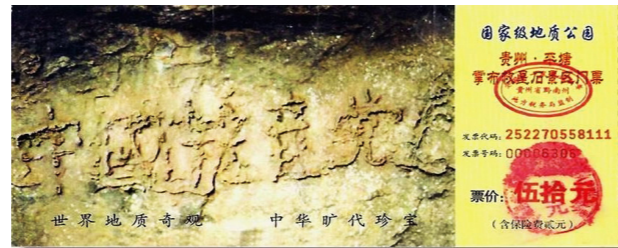 中國共产党亡
世界地质奇观 中华旷代珍宝
国家级地质公园
贵州·平塘
掌布藏字石景区门票
贵州省黔南州
地方税务局监制
发票代码: 252270558111
发票号码:
票价: 伍拾元
(含保险费贰元)